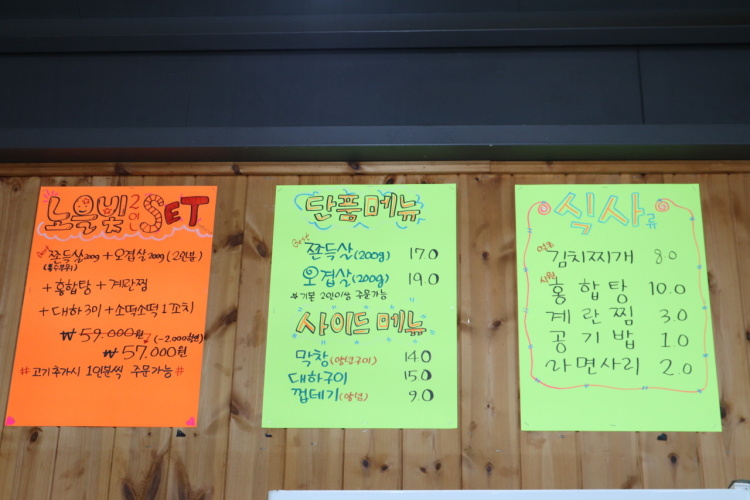 노을빛 2인 SET
쫀득살 200g + 오겹살 200g (2인분)
(특수부위)
+ 홍합탕 + 계란찜
+ 대하구이 + 소떡소떡 1꼬치
₩ 59,000원 (-2,000할인)
₩ 57,000원
# 고기추가시 1인분씩 주문가능 #
단품메뉴
쫀득살 (200g) 17.0
오겹살 (200g) 19.0
# 기본 2인이상 주문가능
사이드 메뉴
막창 (양념구이) 14.0
대하구이 15.0
껍데기 (양념) 9.0
식사류
김치찌개 8.0
시원
홍합탕 10.0
계란찜 3.0
공기밥 1.0
라면사리 2.0